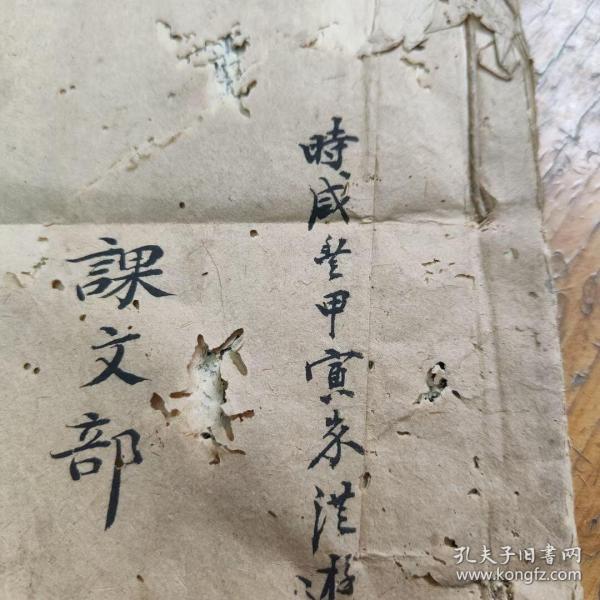 時咸豐甲寅
課文部
孔夫子旧書网
www.kongfz.com